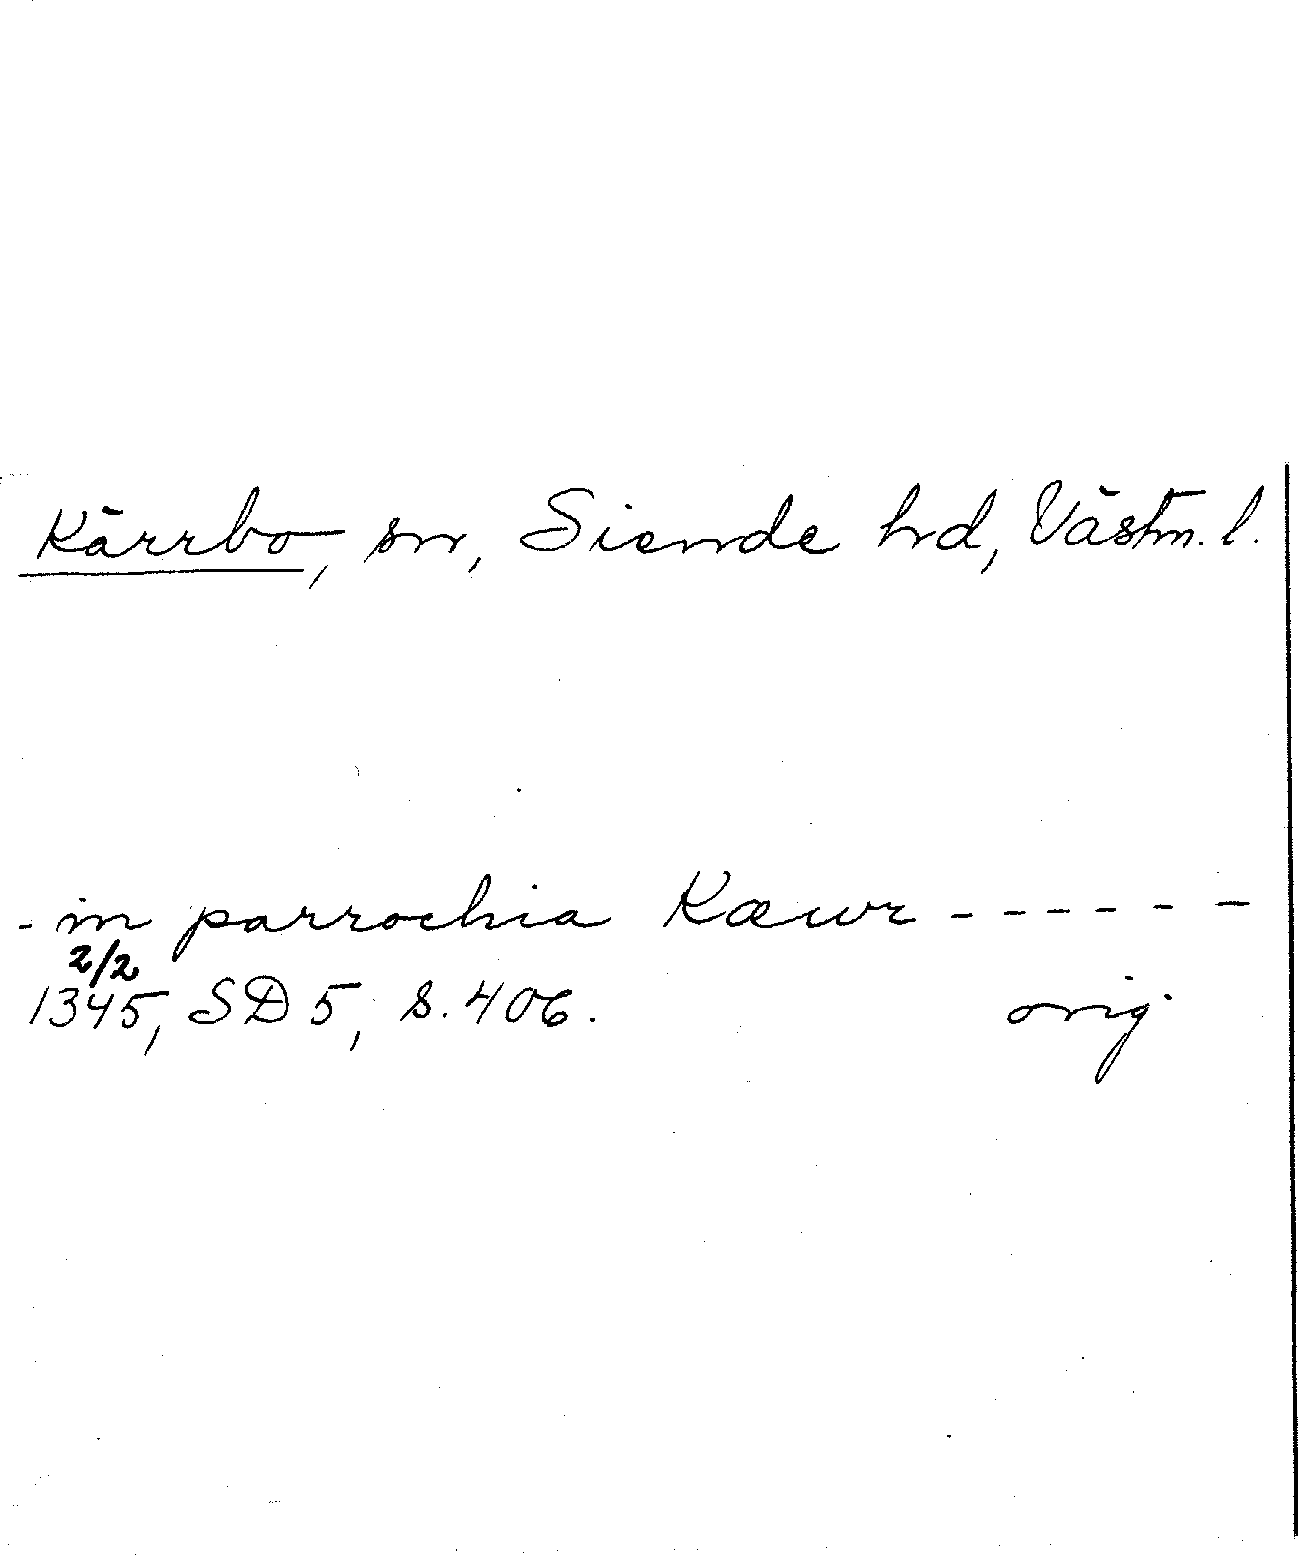 Kärrbo, sn, Siende hd, Västm. l.
- in parrochia Kæwr - - - - - -
2/2
1345, SD 5, s. 406. orig.